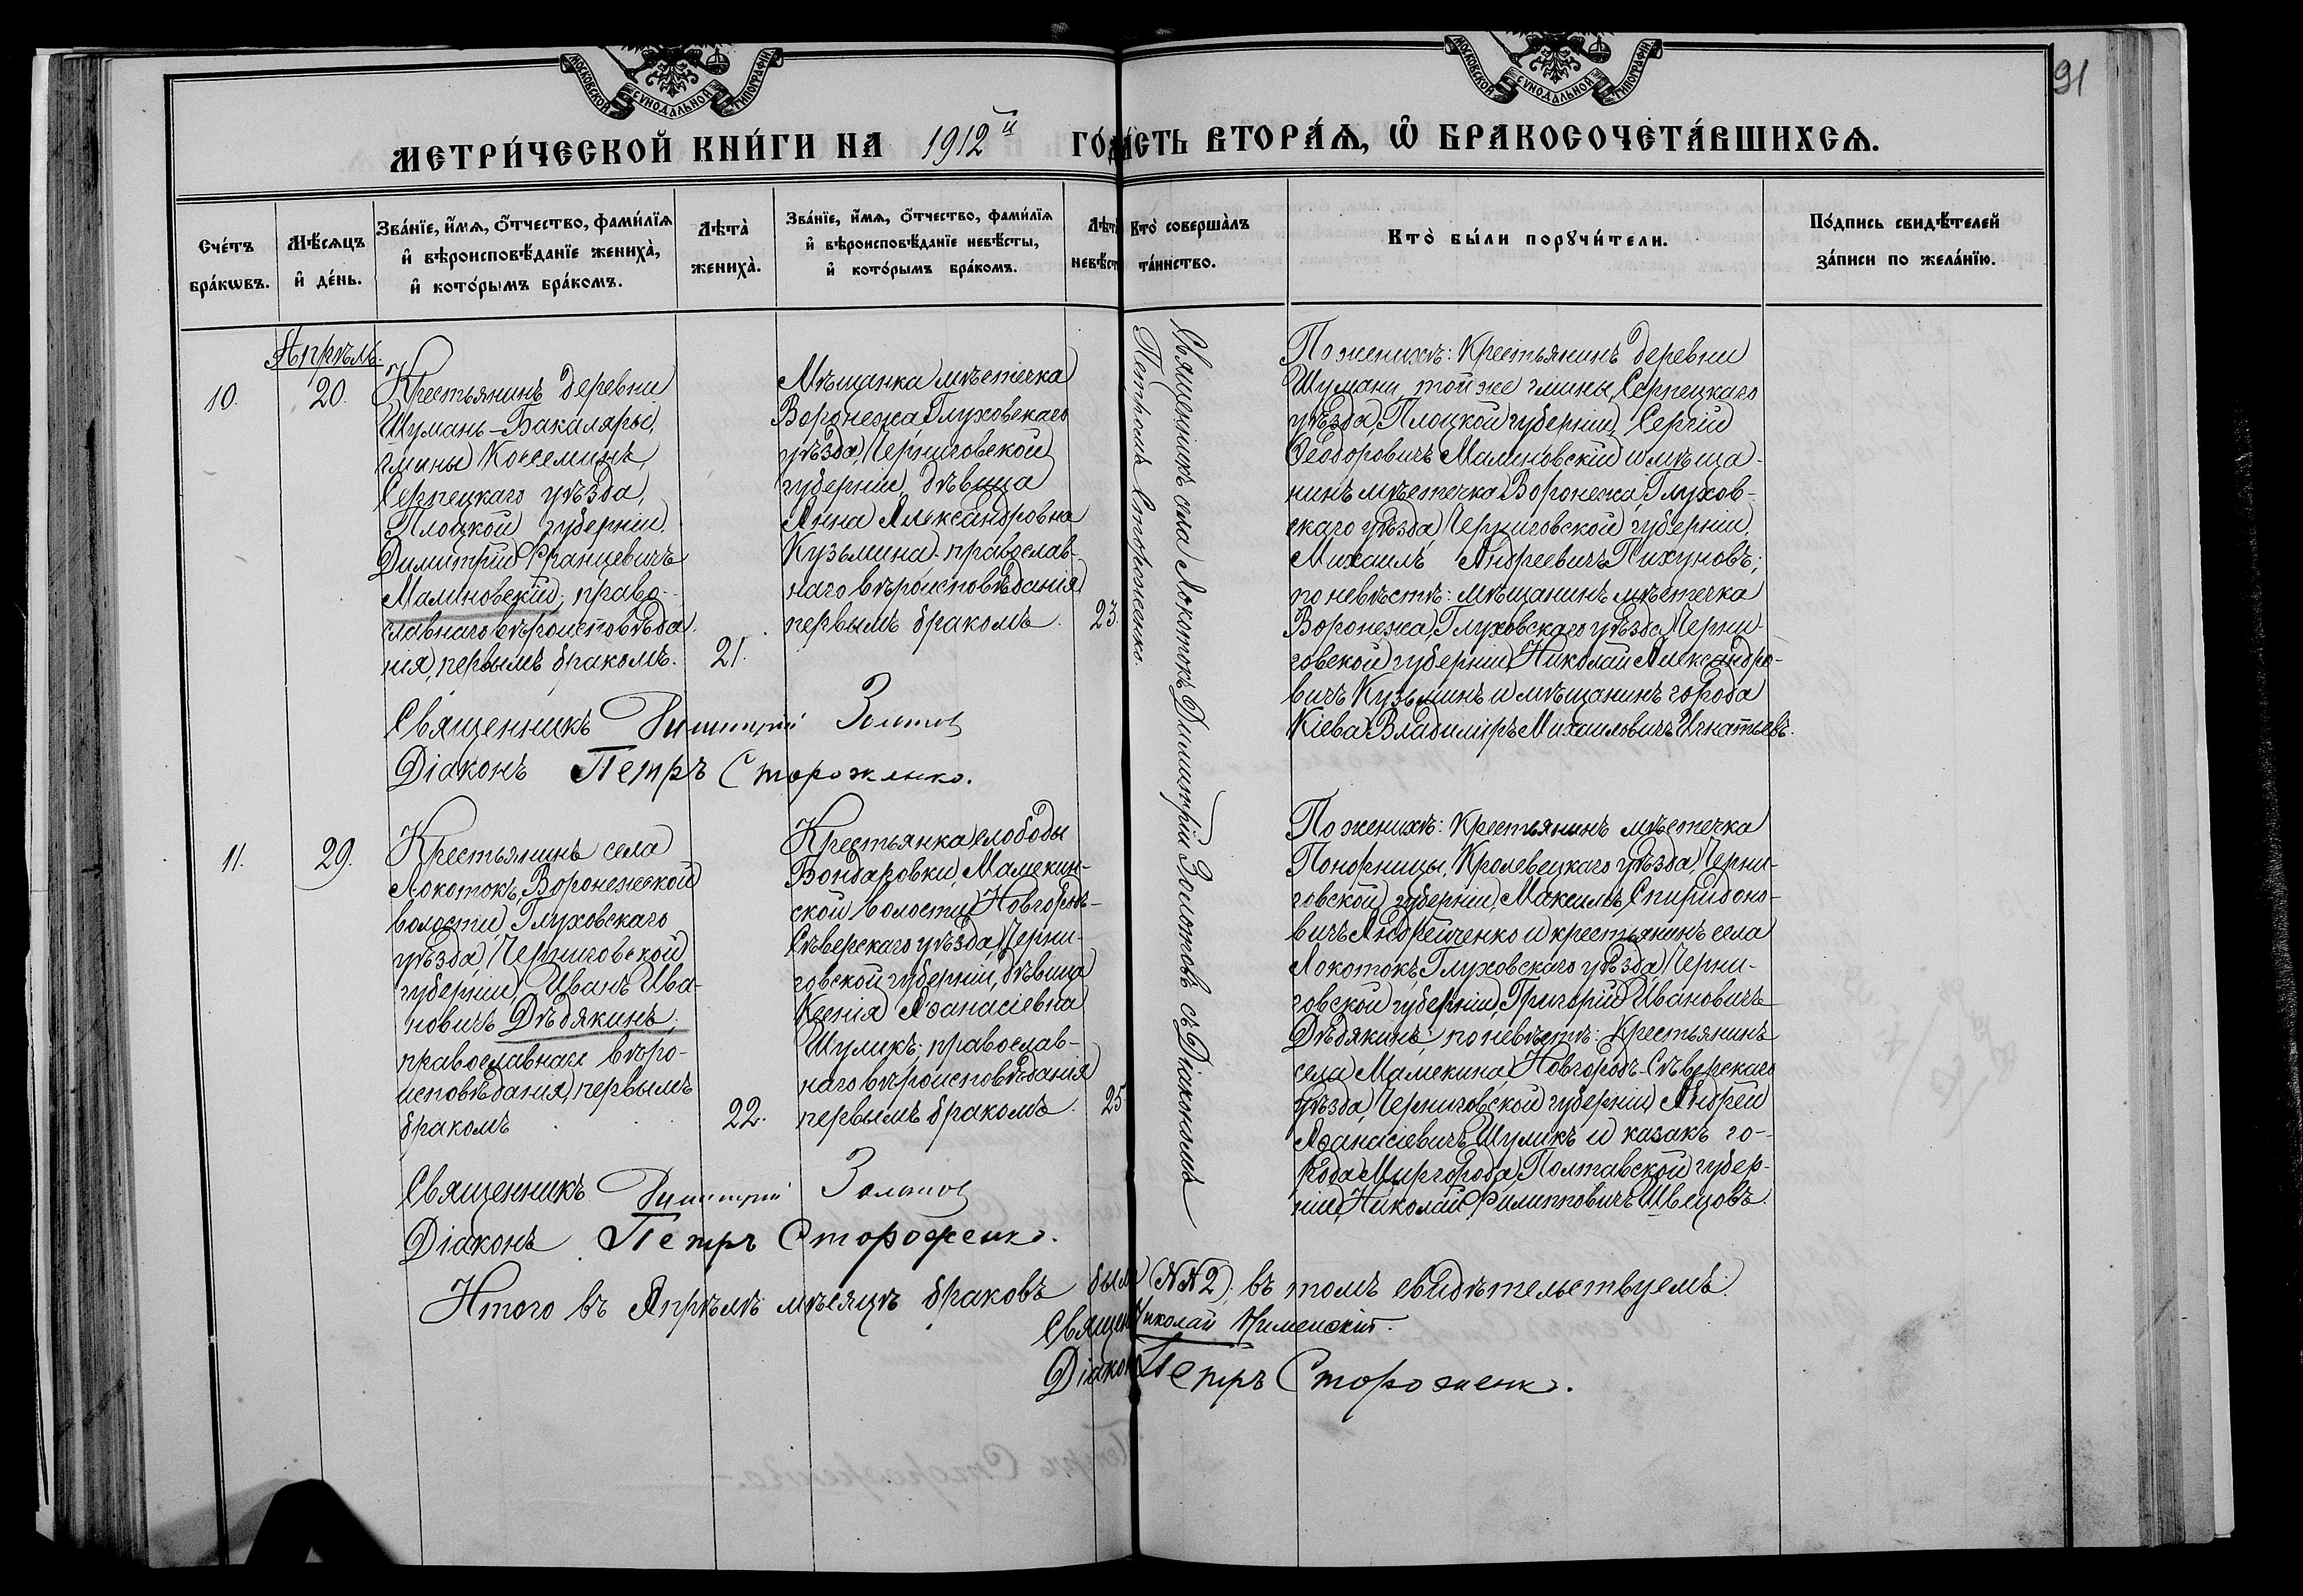 91
МОСКОВСКОЙ СѴНОДАЛЬНОЙ ТИПОГРАФІИ
МОСКОВСКОЙ СѴНОДАЛЬНОЙ ТИПОГРАФІИ
МЕТРИ́ЧЕСКОЙ КНИ́ГИ НА 1912й ГО́ДА
ЧА́СТЬ ВТОРА́Ѧ, Ѽ БРАКОСОЧЕТА́ВШИХСѦ.
Сче́тъ бра́кѡвъ.
Мѣ́сѧцъ и҆ де́нь.
Зва́нїе, и҆́мѧ, ѻ҆́тчество, фами́лїѧ и҆ вѣроисповѣ́данїе жениха̀, и҆ кото́рымъ бра́комъ.
Лѣта̀ жениха̀.
Зва́нїе, и҆́мѧ, ѻ҆́тчество, фами́лїѧ и҆ вѣроисповѣ́данїе невѣ́сты, и҆ кото́рымъ бра́комъ.
Лѣта̀ невѣ́ст
Кто̀ соверша́лъ та́инство.
Кто̀ бы́ли порꙋчи́тели.
По́дпись свидѣ́телей за́писи по жела́нїю.
Апрѣль.
10.
20.
Крестьянинъ деревни
Шумань-Бакаляры,
гмины Коссеминъ,
Серпецкаго уѣзда,
Плоцкой губерніи,
Димитрій Францевичъ
Малиновскій; право-
славнаго вѣроисповѣда-
нія, первымъ бракомъ.
21.
Мѣщанка мѣстечка
Воронежа, Глуховскаго
уѣзда, Черниговской
губерніи, дѣвица
Анна Александровна
Кузьмина; православ-
наго вѣроисповѣданія,
первымъ бракомъ.
23.
Священникъ села Локотокъ Димитрій Золотовъ съ Діакономъ
Петромъ Стороженко.
По женихѣ: Крестьянинъ деревни
Шумани, той же гмины, Серпецкаго
уѣзда, Плоцкой губерніи, Сергій
Ѳеодоровичъ Малиновскій и мѣща-
нинъ мѣстечка Воронежа, Глухов-
скаго уѣзда, Черниговской губерніи,
Михаилъ Андреевичъ Пихуновъ;
по невѣстѣ: мѣщанинъ мѣстечка
Воронежа, Глуховскаго уѣзда, Черни-
говской губерніи, Николай Александро-
вичъ Кузьминъ и мѣщанинъ города
Кіева Владиміръ Михаиловичъ Игнатьевъ.
Священникъ Димитрій Золотов
Діаконъ Петръ Стороженко.
11.
29.
Крестьянинъ села
Локотокъ, Воронежской
волости, Глуховскаго
уѣзда, Черниговской
губерніи, Иванъ Ива-
новичъ Дѣдякинъ;
православнаго вѣро-
исповѣданія, первымъ
бракомъ
22.
Крестьянка слободы
Бондаровки, Мамекин-
ской волости, Новгородъ-
Сѣверскаго уѣзда, Черни-
говской губерніи, дѣвица
Ксенія Аѳанасіевна
Шуликъ; православ-
наго вѣроисповѣданія
первымъ бракомъ.
25.
По женихѣ: Крестьянинъ мѣстечка
Понорницы, Кролевецкаго уѣзда, Черни-
говской губерніи, Максимъ Спиридоно-
вичъ Андрейченко и крестьянинъ села
Локотокъ, Глуховскаго уѣзда, Черни-
говской губерніи, Григорій Ивановичъ
Дѣдякинъ; по невѣстѣ: Крестьянинъ
села Мамекина, Новгородъ-Сѣверскаго
уѣзда, Черниговской губерніи, Андрей
Аѳанасіевичъ Шуликъ и казакъ го-
рода Миргорода, Полтавской губер-
ніи, Николай Филипповичъ Швецовъ.
Священникъ Димитрій Золотов
Діаконъ Петръ Стороженко.
Итого въ Апрѣлѣ мѣсяцѣ браковъ было (№№ 2), въ томъ свидѣтельствуемъ:
Священ Николай
Діакон Петръ Стороженко.